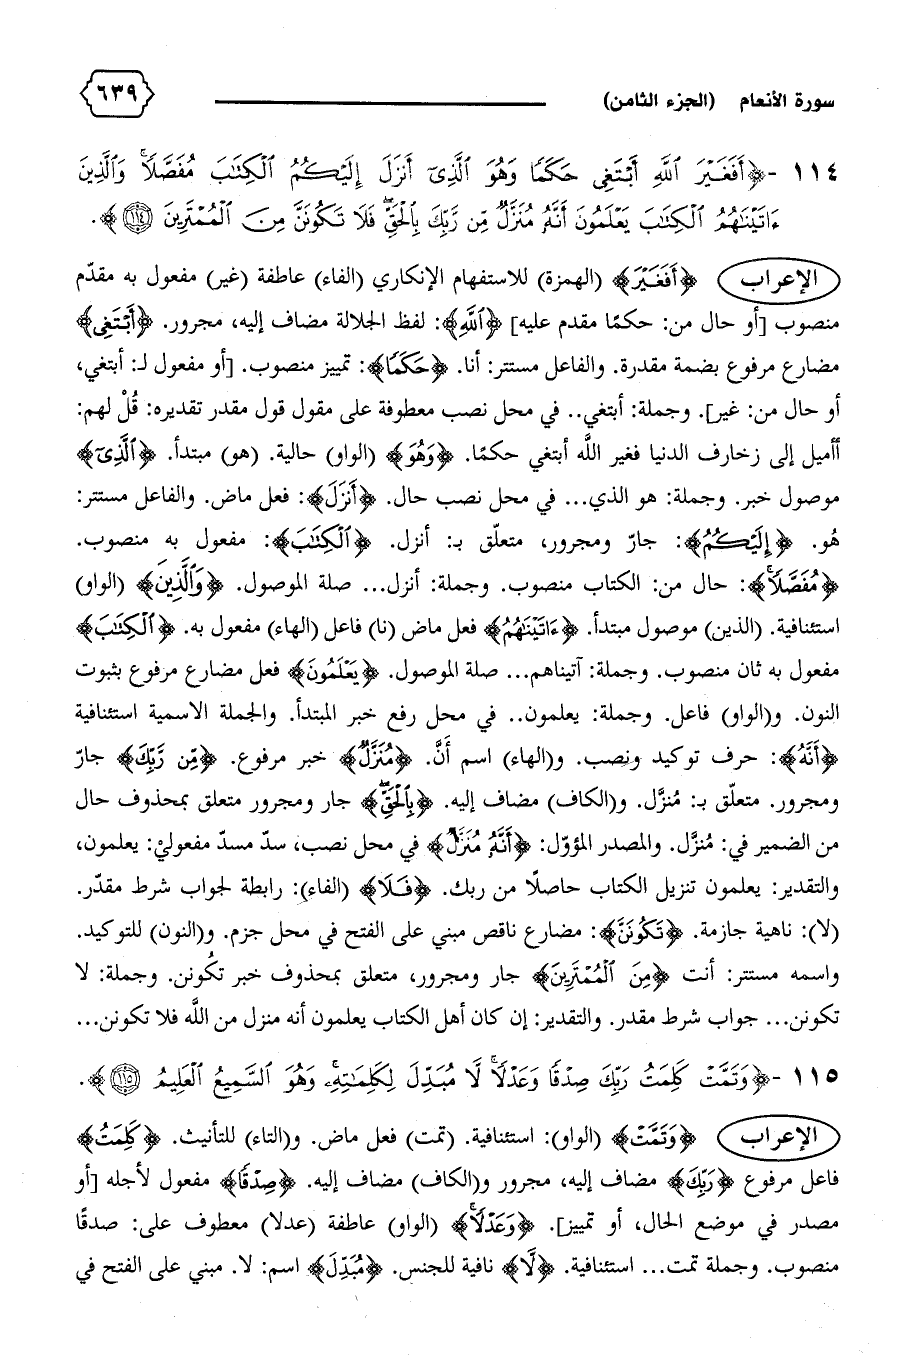 سورة الأنعام (الجزء الثامن)
٦٣٩
١١٤ -﴿أَفَغَيْرَ ٱللَّهِ أَبْتَغِى حَكَمًا وَهُوَ ٱلَّذِىٓ أَنزَلَ إِلَيْكُمُ ٱلْكِتَٰبَ مُفَصَّلًا ۚ وَٱلَّذِينَ
ءَاتَيْنَٰهُمُ ٱلْكِتَٰبَ يَعْلَمُونَ أَنَّهُۥ مُنَزَّلٌ مِّن رَّبِّكَ بِٱلْحَقِّ ۖ فَلَا تَكُونَنَّ مِنَ ٱلْمُمْتَرِينَ ١١٤﴾.
الإعراب ﴿أَفَغَيْرَ﴾ (الهمزة) للاستفهام الإنكاري (الفاء) عاطفة (غير) مفعول به مقدّم
منصوب [أو حال من: حكمًا مقدم عليه] ﴿ٱللَّهِ﴾: لفظ الجلالة مضاف إليه، مجرور. ﴿أَبْتَغِى﴾
مضارع مرفوع بضمة مقدرة. والفاعل مستتر: أنا. ﴿حَكَمًا﴾: تمييز منصوب. [أو مفعول لـ: أبتغي،
أو حال من: غير]. وجملة: أبتغي.. في محل نصب معطوفة على مقول قول مقدر تقديره: قُلْ لهم:
أأميل إلى زخارف الدنيا فغير اللَّه أبتغي حكمًا. ﴿وَهُوَ﴾ (الواو) حالية. (هو) مبتدأ. ﴿ٱلَّذِىٓ﴾
موصول خبر. وجملة: هو الذي... في محل نصب حال. ﴿أَنزَلَ﴾: فعل ماض. والفاعل مستتر:
هُو. ﴿إِلَيْكُمُ﴾: جارّ ومجرور، متعلّق بـ: أنزل. ﴿ٱلْكِتَٰبَ﴾: مفعول به منصوب.
﴿مُفَصَّلًا ۚ﴾: حال من: الكتاب منصوب. وجملة: أنزل... صلة الموصول. ﴿وَٱلَّذِينَ﴾ (الواو)
استئنافية. (الذين) موصول مبتدأ. ﴿ءَاتَيْنَٰهُمُ﴾ فعل ماض (نا) فاعل (الهاء) مفعول به. ﴿ٱلْكِتَٰبَ﴾
مفعول به ثان منصوب. وجملة: آتيناهم... صلة الموصول. ﴿يَعْلَمُونَ﴾ فعل مضارع مرفوع بثبوت
النون. و(الواو) فاعل. وجملة: يعلمون.. في محل رفع خبر المبتدأ. والجملة الاسمية استئنافية
﴿أَنَّهُ﴾: حرف توكيد ونصب. و(الهاء) اسم أَنَّ. ﴿مُنَزَّلٌ﴾ خبر مرفوع. ﴿مِّن رَّبِّكَ﴾ جارّ
ومجرور. متعلّق بـ: مُنزَّل. و(الكاف) مضاف إليه. ﴿بِٱلْحَقِّ ۖ﴾ جار ومجرور متعلق بمحذوف حال
من الضمير في: مُنزَّل. والمصدر المؤوّل: ﴿أَنَّهُۥ مُنَزَّلٌ﴾ في محل نصب، سدّ مسدّ مفعوليْ: يعلمون،
والتقدير: يعلمون تنزيل الكتاب حاصلًا من ربك. ﴿فَلَا﴾ (الفاء): رابطة لجواب شرط مقدّر.
(لا): ناهية جازمة. ﴿تَكُونَنَّ﴾: مضارع ناقص مبني على الفتح في محل جزم. و(النون) للتوكيد.
واسمه مستتر: أنت ﴿مِنَ ٱلْمُمْتَرِينَ﴾ جار ومجرور، متعلق بمحذوف خبر تكُونن. وجملة: لا
تكونن... جواب شرط مقدر. والتقدير: إن كان أهل الكتاب يعلمون أنه منزل من اللَّه فلا تكونن...
١١٥ -﴿وَتَمَّتْ كَلِمَتُ رَبِّكَ صِدْقًا وَعَدْلًا ۚ لَّا مُبَدِّلَ لِكَلِمَٰتِهِۦ ۚ وَهُوَ ٱلسَّمِيعُ ٱلْعَلِيمُ ١١٥﴾.
الإعراب ﴿وَتَمَّتْ﴾ (الواو): استئنافية. (تمت) فعل ماض. و(التاء) للتأنيث. ﴿كَلِمَتُ﴾
فاعل مرفوع ﴿رَبِّكَ﴾ مضاف إليه، مجرور و(الكاف) مضاف إليه. ﴿صِدْقًا﴾ مفعول لأجله [أو
مصدر في موضع الحال، أو تمييز]. ﴿وَعَدْلًا ۚ﴾ (الواو) عاطفة (عدلا) معطوف على: صدقًا
منصوب. وجملة تمت... استئنافية. ﴿لَّا﴾ نافية للجنس. ﴿مُبَدِّلَ﴾ اسم: لا. مبني على الفتح في